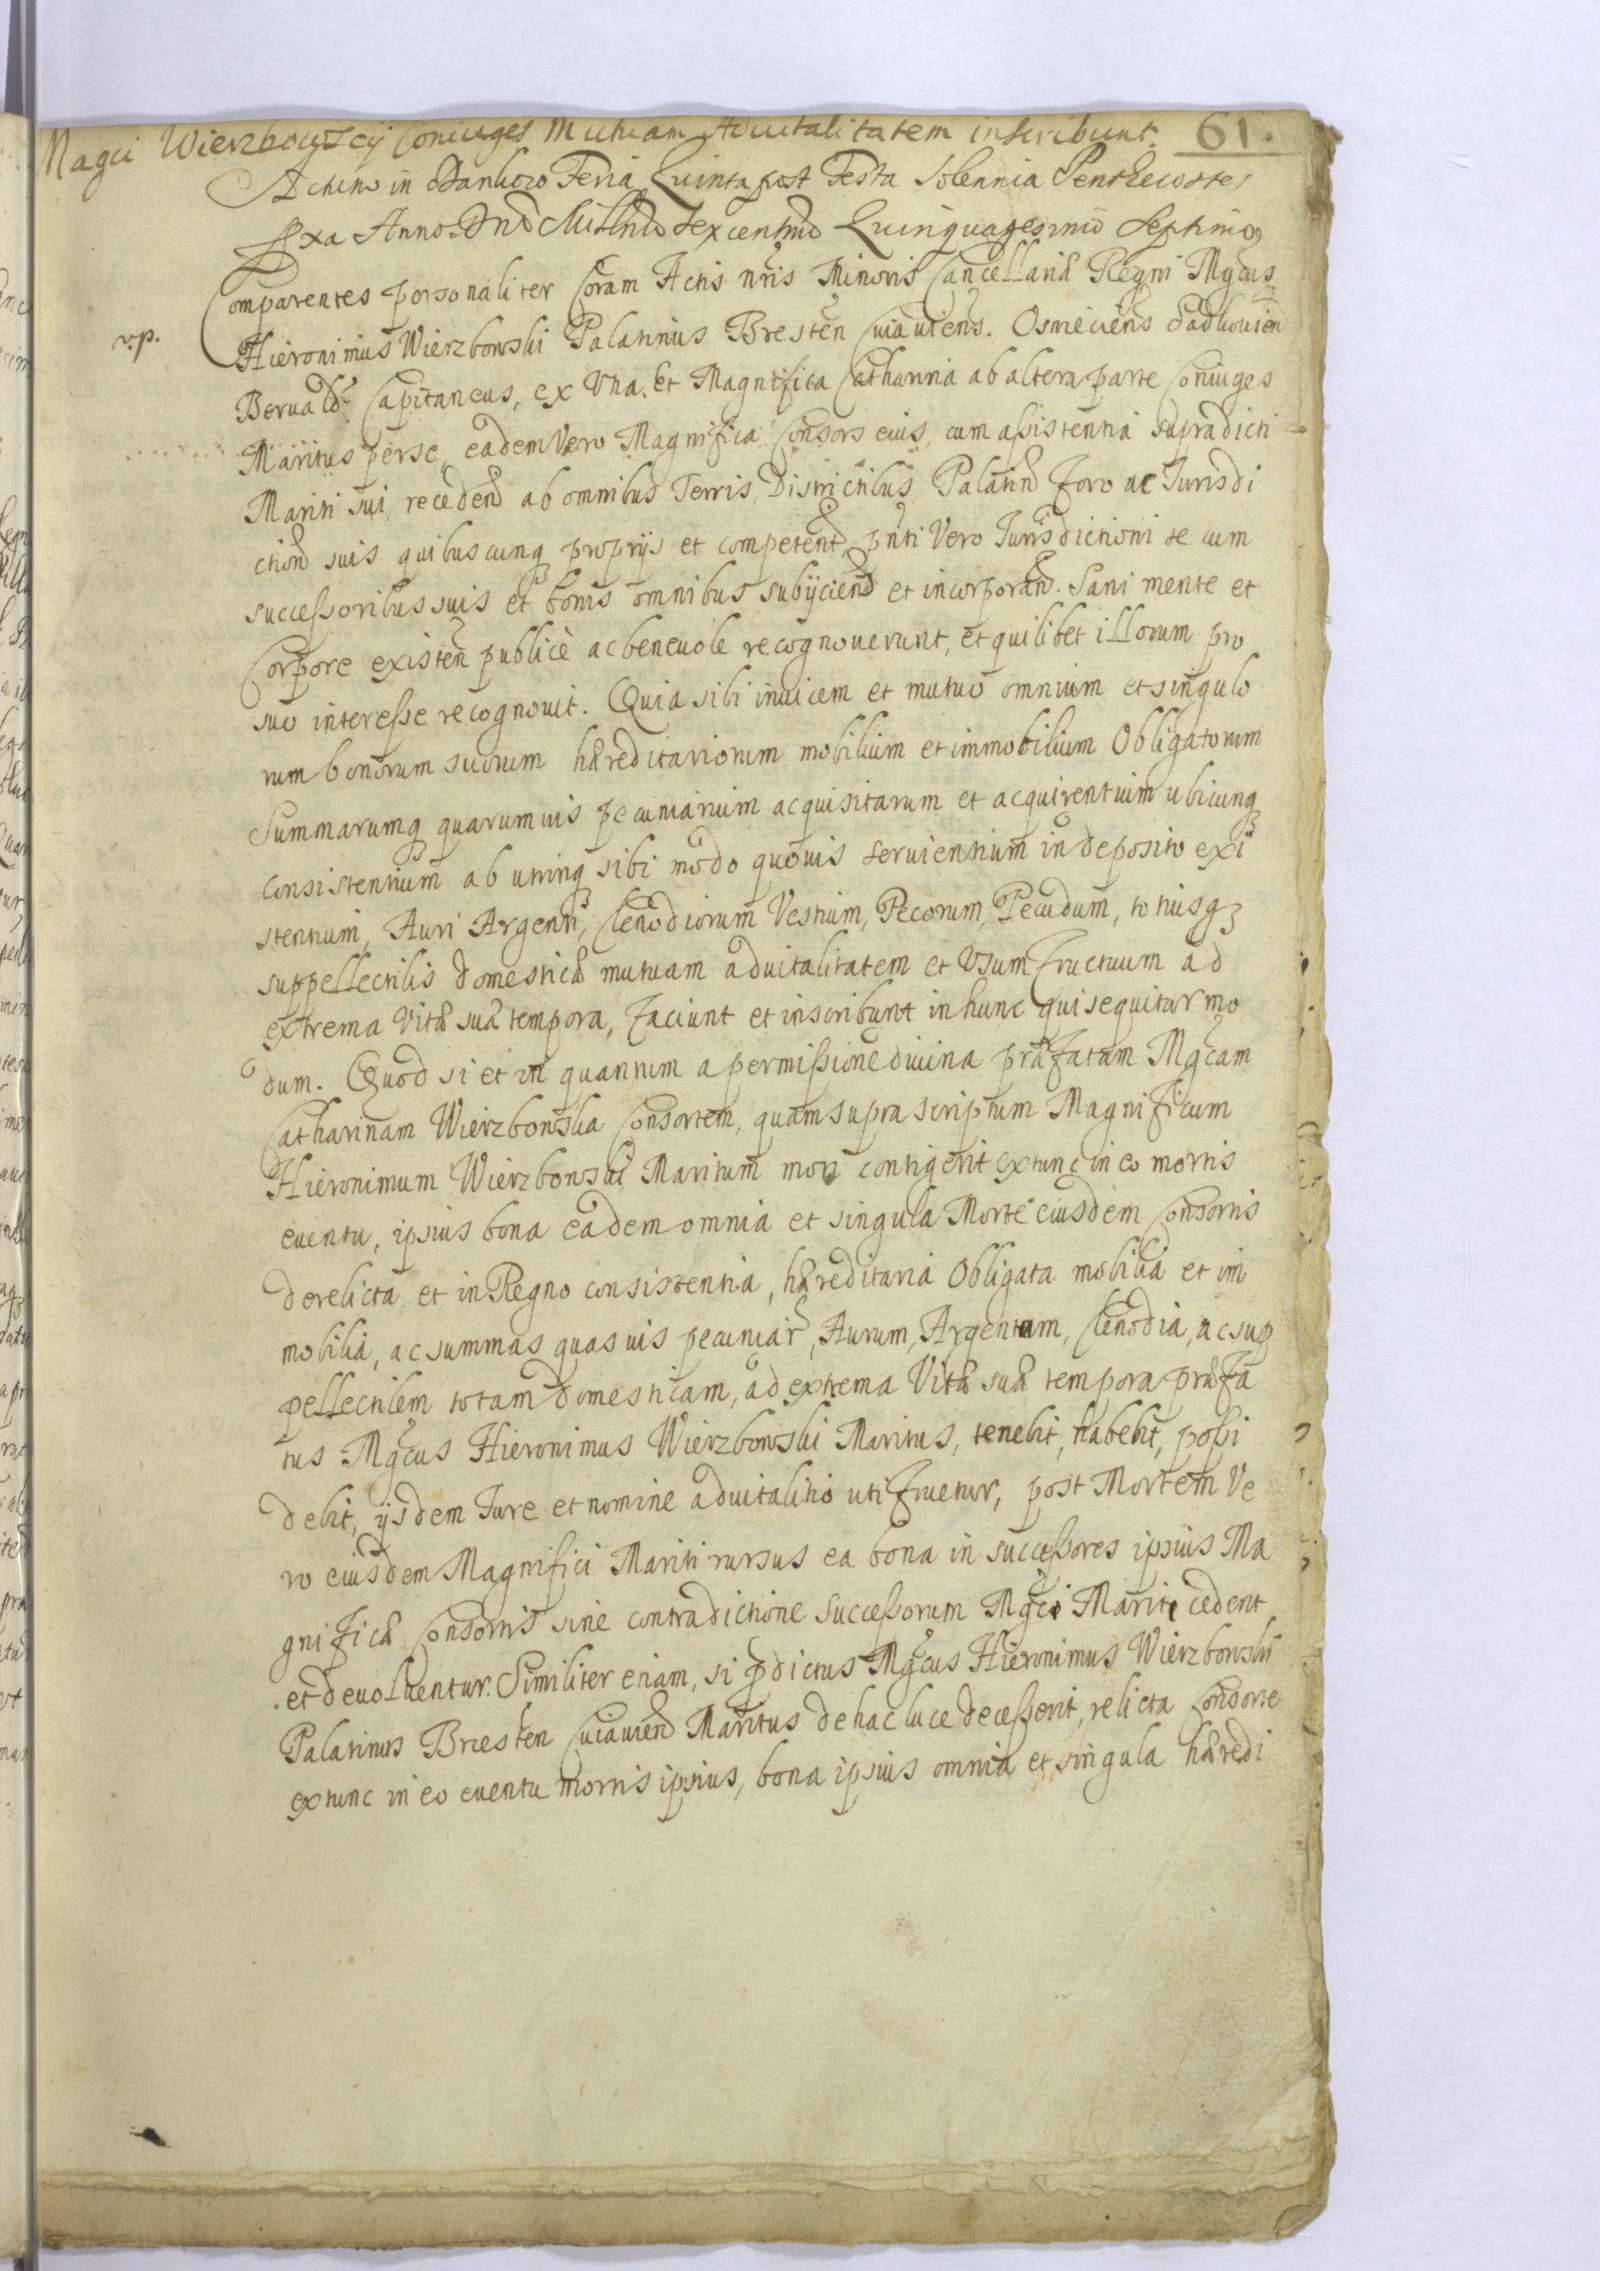 Magci Wierzbowscy Coniuges Mutuam Aduitalitatem inscribunt. 61.
Actum in Dankow Feria Quinta post Festa solennia Penthecostes
sexa Anno Dnō Millmō sexcentmō Quinquagesimō septimo
Comparentes personaliter Coram Actis nris Minoris Cancellariæ Regni Mgcus
v.p.
Hieronimus Wierzbowski Palatinus Bresten Cuiauiens. Osmecens Sadkouien
Beruald Capitaneus, ex Vna, et Magnifica Catharina ab altera parte Coniuges
Maritus per se, eadem Vero Magnifica Consors eius, cum assistentia supradicti
Mariti sui, recedend ab omnibus Terris, Districtibus, Palatin Foro ac Jurisdi
ction suis quibuscunq proprijs et competent, pnti Vero Jurisdictioni se cum
successoribus suis et bonis omnibus subijciend et incorporan. Sani mente et
Corpore existen publicè ac beneuole recognouerunt, et quilibet illorum pro
suo interesse recognouit. Quia sibi inuicem et mutuo omnium et singulo
rum bonorum suorum hæreditariorum mobilium et immobilium Obligatorum
Summarumq quarumuis pecuniarium acquisitarum et acquirentium ubicunq
consistentium ab utrinq sibi modo quouis seruientium in deposito exi
stentium, Auri Argenti, Clenodiorum Vestium, Pecorum, Pecudum, totiusq
suppellectilis domesticæ mutuam aduitalitatem et Vsumfructuum ad
extrema Vitæ suæ tempora, Faciunt et inscribunt in hunc qui sequitur mo
dum. Quod si et in quantum a permissione diuina præfatam Mgcam
Catharinam Wierzbowska Consortem, quam suprascriptum Magnificum
Hieronimum Wierzbowski Maritum mori contigerit extunc in eo mortis
euentu, ipsius bona eadem omnia et singula Morte eiusdem Consortis
derelicta et in Regno consistentia, hæreditaria Obligata mobilia et im
mobilia, ac summas quasuis pecuniar, Aurum, Argentum, Clenodia, ac sup
pellectilem totam domesticam, ad extrema Vitæ suæ tempora præfa
tus Mgcus Hieronimus Wierzbowski Maritus, tenebit, habebit, possi
debit, ijsdem Jure et nomine aduitalitio uti fruetur, post Mortem Ve
ro eiusdem Magnifici Mariti rursus ea bona in successores ipsius Ma
gnificæ Consortis sine contradictione successorum Mgci Mariti cedent
et deuoluentur. Similiter etiam, si pdictus Mgcus Hieronimus Wierzbowski
Palatinus Bresten Cuiauien Maritus de hac luce decesserit, relicta Consorte
extunc in eo euentu mortis ipsius, bona ipsius omnia et singula hæredi